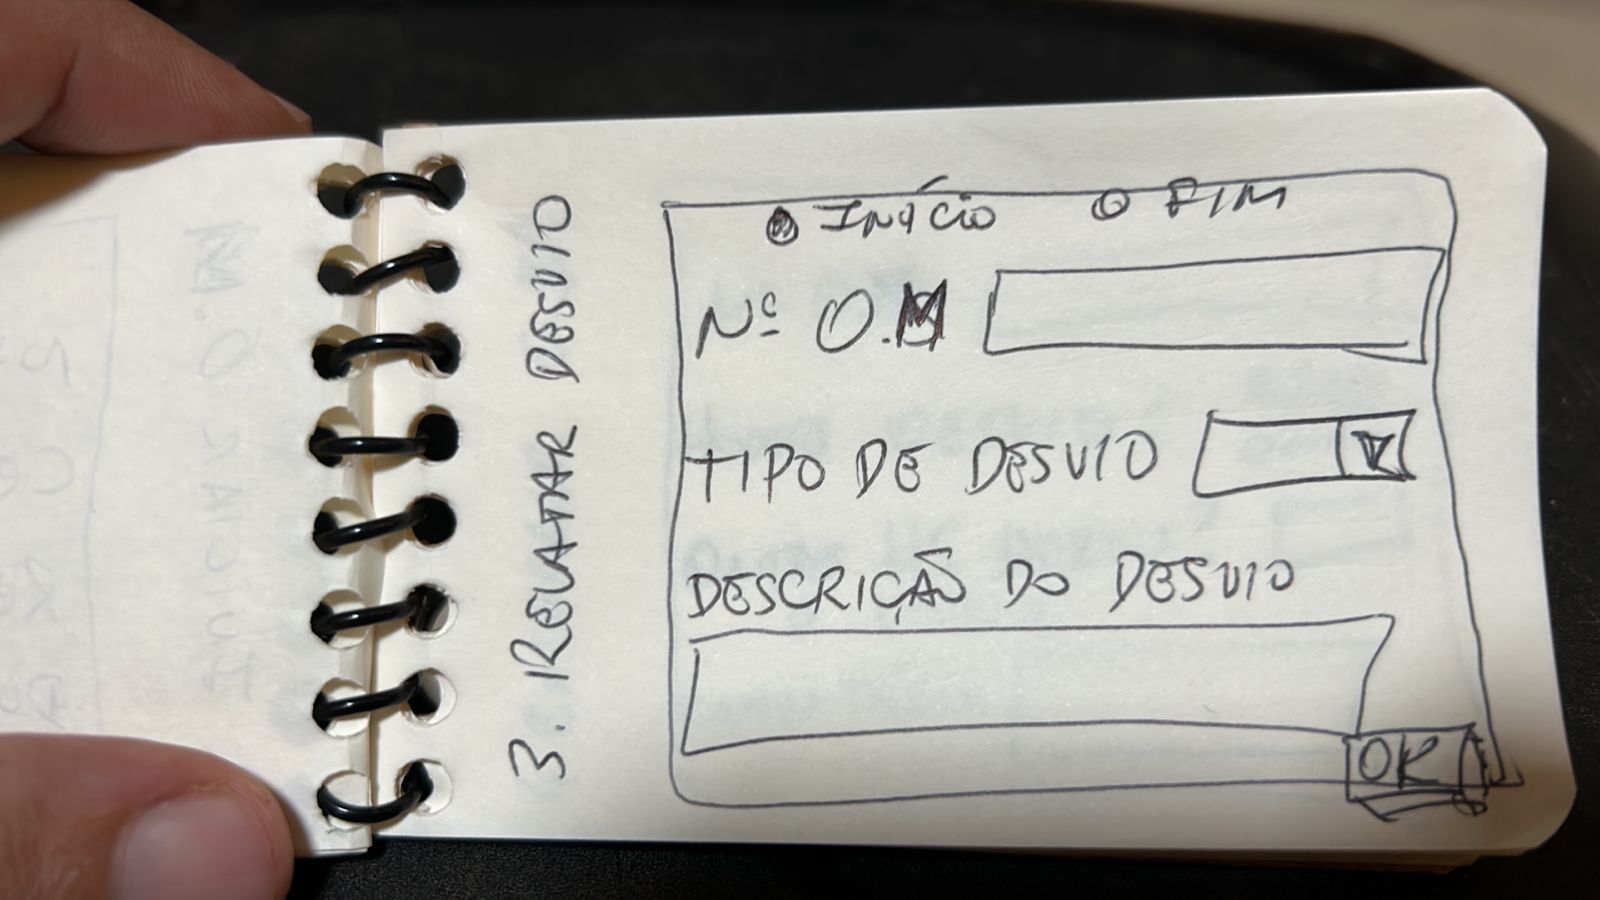 3. RELATAR DESVIO
INÍCIO FIM
Nº O.M
TIPO DE DESVIO
DESCRIÇÃO DO DESVIO
OK